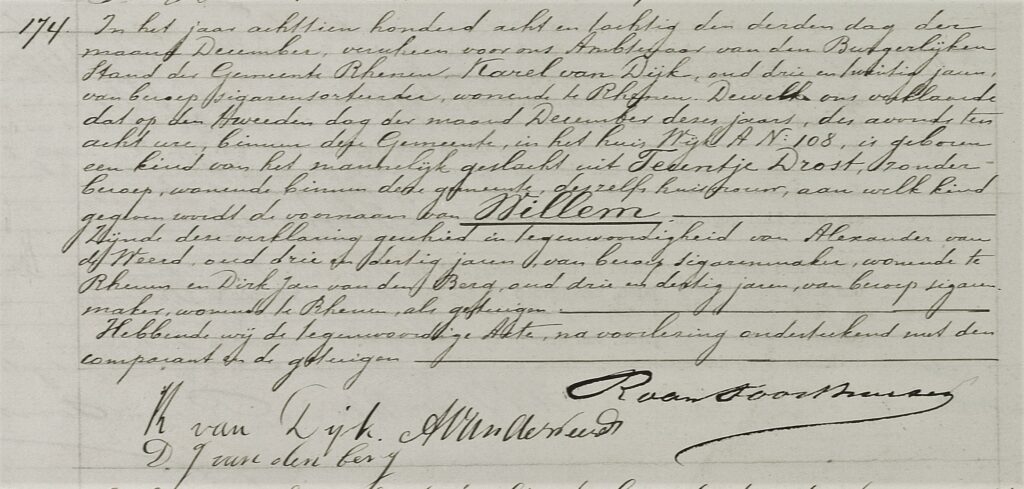 174 In het jaar achttien honderd acht en tachtig den derden dag der
maand December, verscheen voor ons Ambtenaar van den Burgerlijken
Stand der Gemeente Rhenen, Karel van Dijk, oud drie en twintig jaren,
van beroep sigarensorteerder, wonende te Rhenen. Dewelke ons verklaarde
dat op den tweeden dag der maand December dezes jaars, des avonds ten
acht ure, binnen deze Gemeente, in het huis Wijk A No 108, is geboren
een kind van het mannelijk geslacht uit Teuntje Drost, zonder
beroep, wonende binnen deze gemeente, deszelfs huisvrouw, aan welk kind
gegeven wordt de voornaam van Willem
Zijnde deze verklaring geschied in tegenwoordigheid van Alexander van
de Weerd, oud drie en dertig jaren, van beroep sigarenmaker, wonende te
Rhenen en Dirk Jan van den Berg, oud drie en dertig jaren, van beroep sigaren
maker, wonende te Rhenen, als getuigen
Hebbende wij de tegenwoordige Akte, na voorlezing onderteekend met den
comparant en de getuigen
K van Dijk. AVandeWeerdt
D. J van den berg